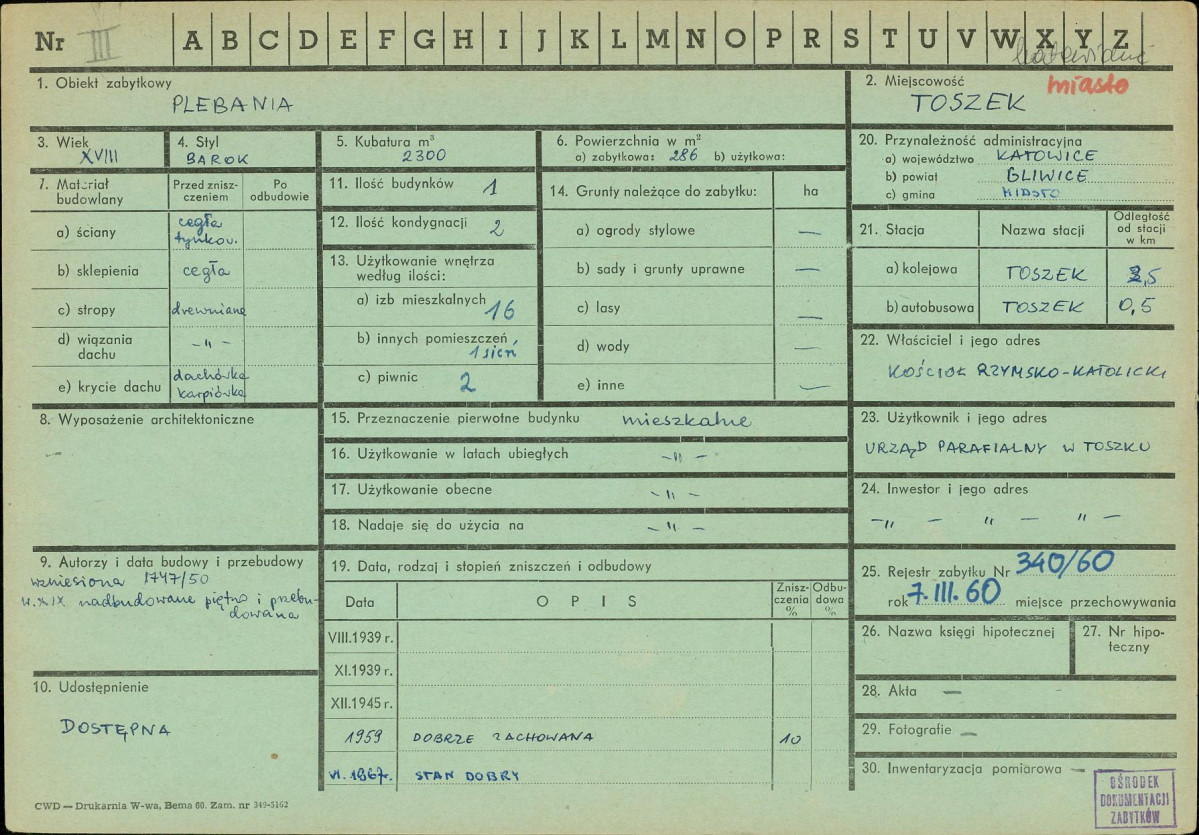 Nr III A B C D E F G H I J K L M N O P R S T U V W X Y Z
1. Obiekt zabytkowy
PLEBANIA
2. Miejscowość miasto
TOSZEK
3. Wiek
XVIII
4. Styl
BAROK
5. Kubatura m³
2300
6. Powierzchnia w m²
a) zabytkowa: 286 b) użytkowa:
20. Przynależność administracyjna
a) województwo KATOWICE
b) powiat GLIWICE
c) gmina MIASTO
7. Materiał budowlany
Przed znisz-
czeniem
Po
odbudowie
a) ściany cegła
tynkow.
b) sklepienia cegła
c) stropy drewniane
d) wiązania
dachu -„-
e) krycie dachu dachówka
karpiówka
11. Ilość budynków 1
12. Ilość kondygnacji 2
13. Użytkowanie wnętrza
według ilości:
a) izb mieszkalnych 16
b) innych pomieszczeń,
1 sień
c) piwnic 2
14. Grunty należące do zabytku: ha
a) ogrody stylowe —
b) sady i grunty uprawne —
c) lasy —
d) wody —
e) inne —
21. Stacja Nazwa stacji Odległość
od stacji
w km
a) kolejowa TOSZEK 2,5
b) autobusowa TOSZEK 0,5
22. Właściciel i jego adres
KOŚCIÓŁ RZYMSKO-KATOLICKI
8. Wyposażenie architektoniczne
—
15. Przeznaczenie pierwotne budynku mieszkalne
16. Użytkowanie w latach ubiegłych -„-
17. Użytkowanie obecne -„-
18. Nadaje się do użycia na -„-
23. Użytkownik i jego adres
URZĄD PARAFIALNY W TOSZKU
24. Inwestor i jego adres
-„ — „ — „ —
9. Autorzy i data budowy i przebudowy
wzniesiona 1747/50
w. XIX nadbudowane piętro i przebu-
dowana
19. Data, rodzaj i stopień zniszczeń i odbudowy
Data OPIS Znisz-
czenia
% Odbu-
dowa
%
VIII.1939 r.
XI.1939 r.
XII.1945 r.
1959 DOBRZE ZACHOWANA 10
VI. 1967r. STAN DOBRY
25. Rejestr zabytku Nr 340/60
rok 7.III.60 miejsce przechowywania
26. Nazwa księgi hipotecznej
27. Nr hipo-
teczny
10. Udostępnienie
DOSTĘPNA
28. Akta —
29. Fotografie —
30. Inwentaryzacja pomiarowa —
OŚRODEK
DOKUMENTACJI
ZABYTKÓW
CWD — Drukarnia W-wa, Bema 60. Zam. nr 349-5162